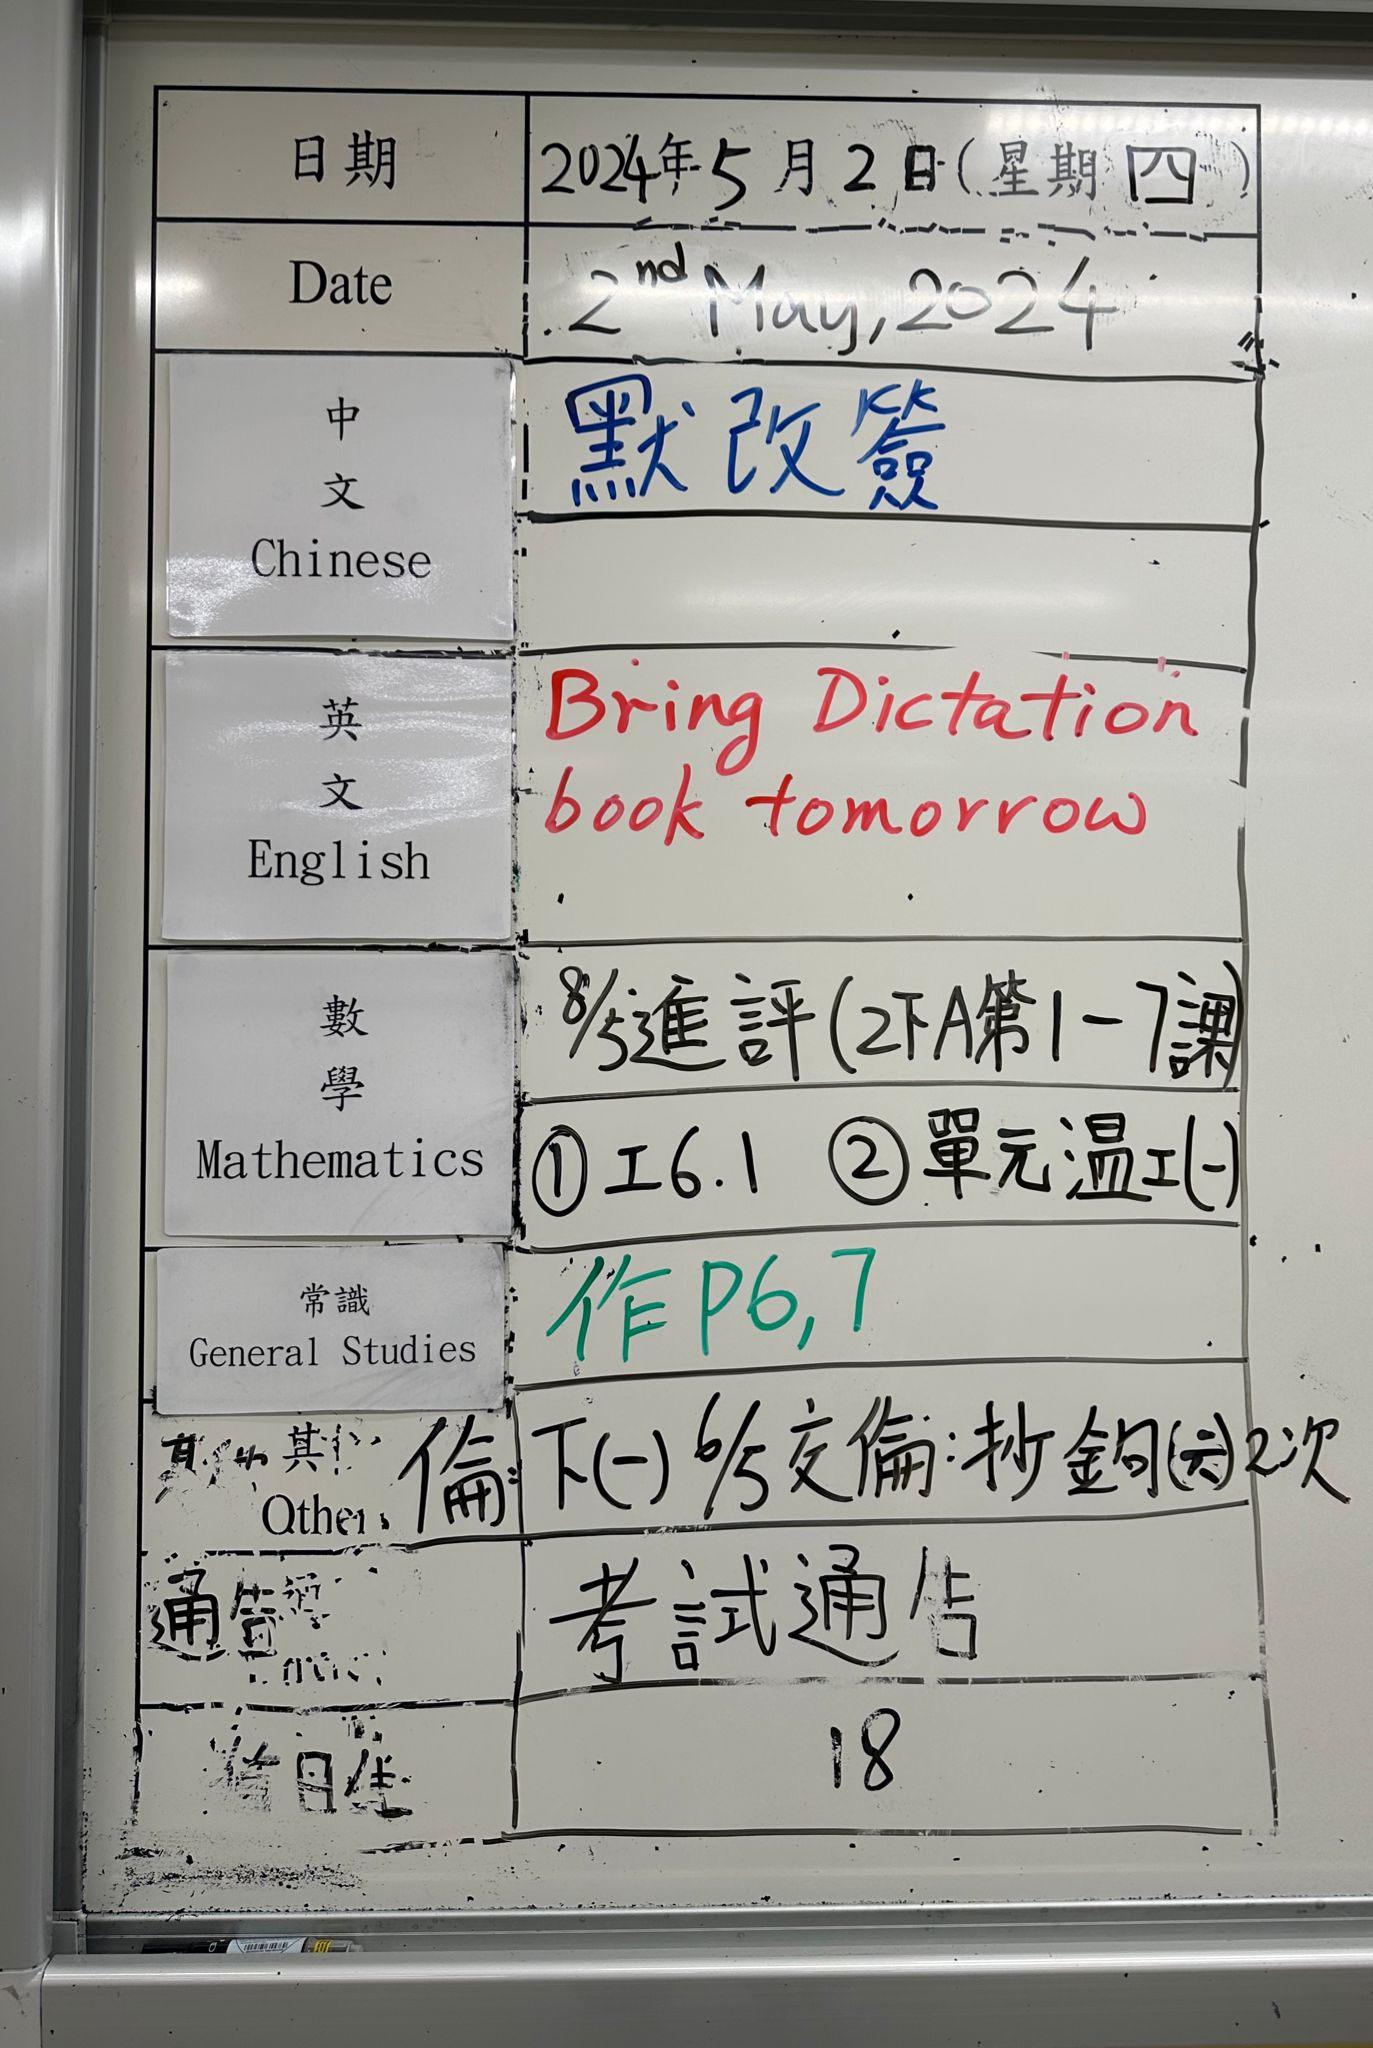 日期 2024年5月2日(星期四)
Date 2nd May, 2024
中
文
Chinese
默改簽
英
文
English
Bring Dictation
book tomorrow
數
學
Mathematics
8/5進評(2下A第1-7課)
①工6.1 ②單元温工(一)
常識
General Studies
作P6,7
倫: 下(一) 6/5交倫:抄金句(六)2次
Other
通告 考試通告
日生 18